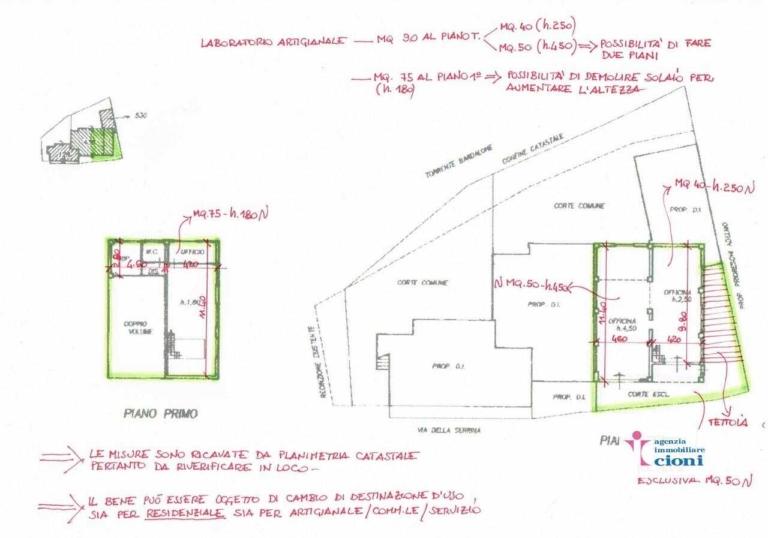 LABORATORIO ARTIGIANALE — MQ 90 AL PIANO T.
MQ. 40 (h. 250)
MQ. 50 (h. 450) ⇒ POSSIBILITA' DI FARE
DUE PIANI
— MQ. 75 AL PIANO 1º ⇒ POSSIBILITA' DI DEMOLIRE SOLAIO PER
(h. 180)
AUMENTARE L'ALTEZZA
530
TORRENTE BARDALONE
CONFINE CATASTALE
MQ. 75 - h. 180 N
W.C.
UFFICIO
DIS.
4.60
420
h. 1,80
11.40
DOPPIO
VOLUME
PIANO PRIMO
CORTE COMUNE
PROP. D.I.
MQ. 40 - h. 250 N
CORTE COMUNE
PROP. D.I.
N MQ. 50 - h 450
OFFICINA
h. 2,50
OFFICINA
h. 4,50
11.40
9.80
460
420
RECINZIONE ESISTENTE
PROP. D.I.
PROP. D.I.
CORTE ESCL.
VIA DELLA SERBINA
TETTOIA
PIA
agenzia
immobiliare
cioni
ESCLUSIVA MQ. 50 N
⇒ LE MISURE SONO RICAVATE DA PLANIMETRIA CATASTALE
PERTANTO DA RIVERIFICARE IN LOCO -
⇒ IL BENE PUÒ ESSERE OGGETTO DI CAMBIO DI DESTINAZIONE D'USO,
SIA PER RESIDENZIALE SIA PER ARTIGIANALE/COMM.LE/SERVIZIO